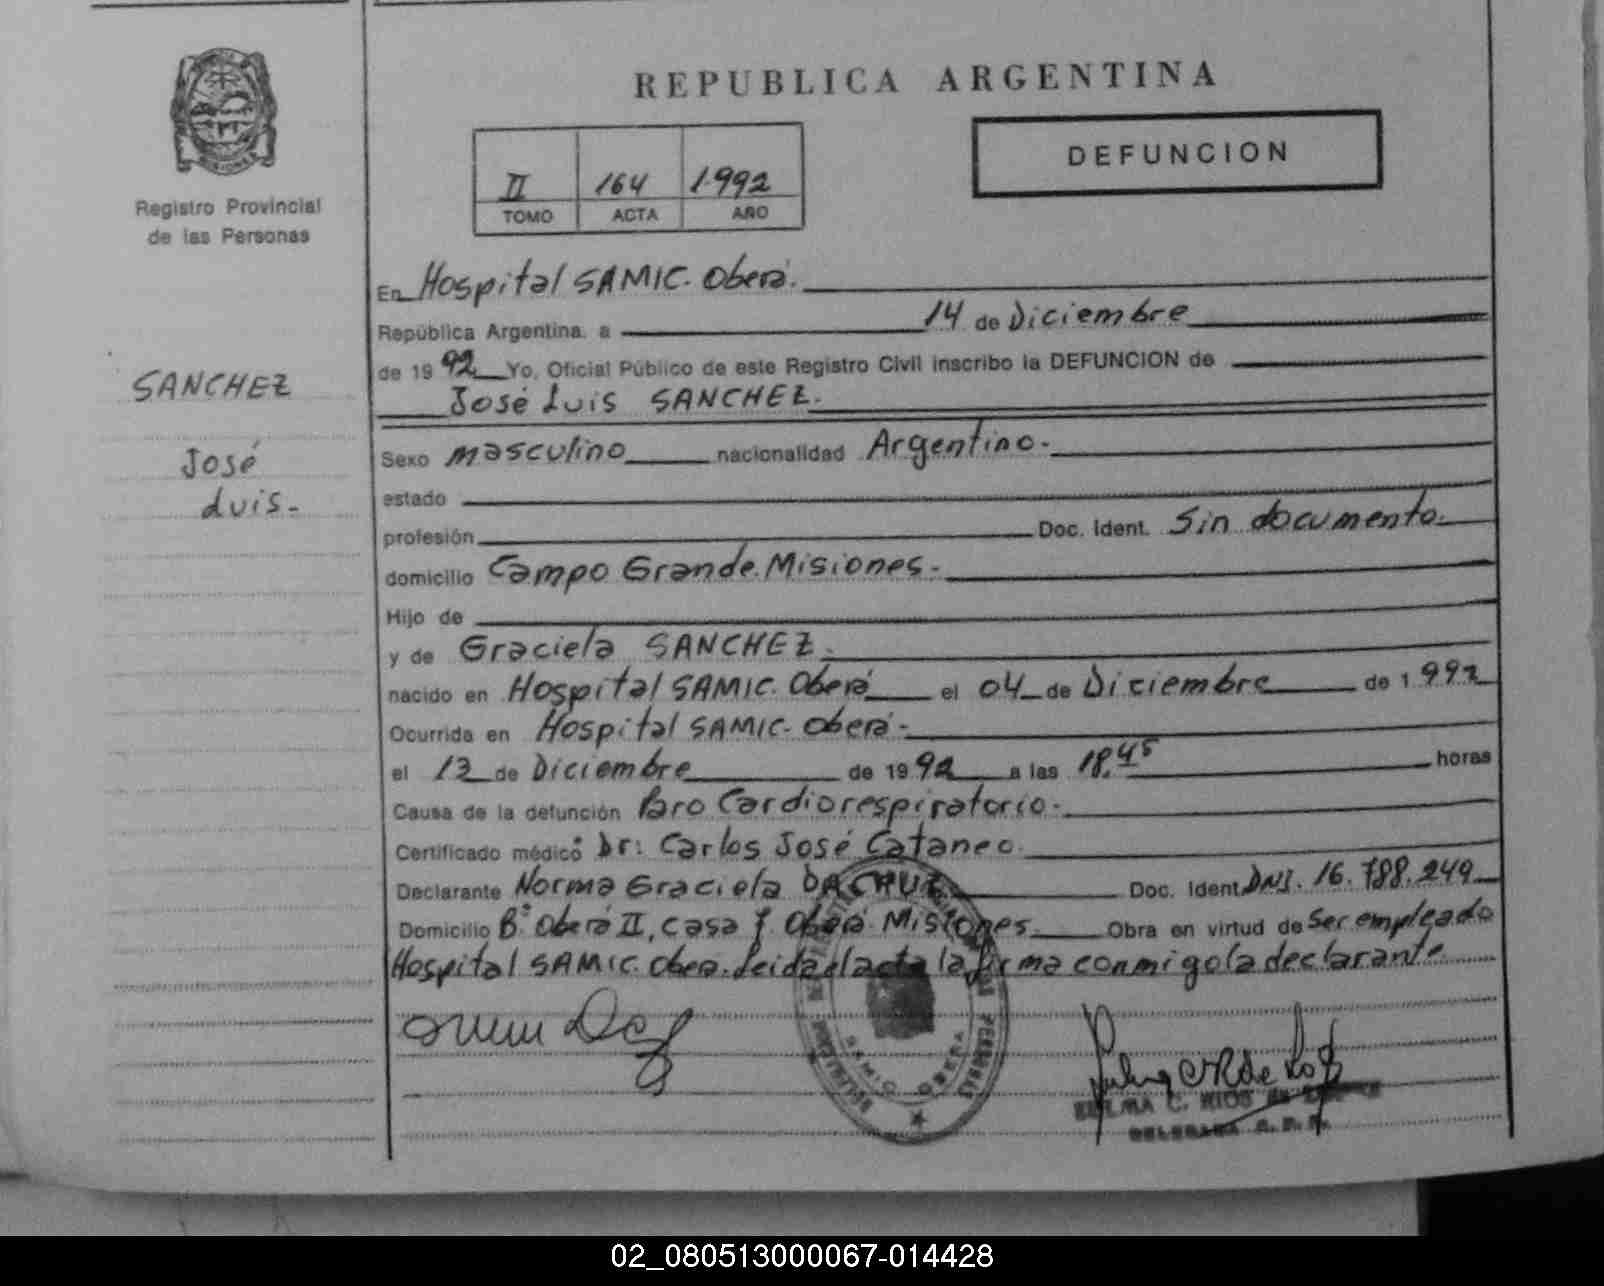 REPUBLICA ARGENTINA
DEFUNCION
II 164 1.992
TOMO ACTA AÑO
Registro Provincial
de las Personas
SANCHEZ
José
Luis.-
En Hospital SAMIC. Oberá.
República Argentina, a 14 de Diciembre
de 1992 Yo, Oficial Público de este Registro Civil inscribo la DEFUNCION de
José Luis SANCHEZ.
Sexo masculino nacionalidad Argentino.-
estado
profesión Doc. Ident. Sin documento.
domicilio Campo Grande. Misiones.-
Hijo de
y de Graciela SANCHEZ.
nacido en Hospital SAMIC. Oberá el 04 de Diciembre de 1.992
Ocurrida en Hospital SAMIC. Oberá.-
el 13 de Diciembre de 1992 a las 18,45 horas
Causa de la defunción Paro Cardiorespiratorio.-
Certificado médico Dr: Carlos José Cataneo.
Declarante Norma Graciela Doc. Ident DNI. 16.788.249
Domicilio B° Oberá II, Casa Oberá Misiones. Obra en virtud de Ser empleado
Hospital SAMIC. Oberá. Leida el acta la firma conmigo la declarante
SAMIC OBERA
C. RIOS de
02_080513000067-014428